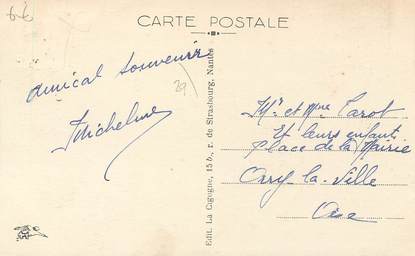 66
CARTE POSTALE
Amical souvenir
29
Micheline
Edit. La Cigogne, 15 b, r. de Strasbourg, Nantes
Mr et Mme Carot
Et leurs enfants
Place de la Mairie
Orry-la-Ville
Oise